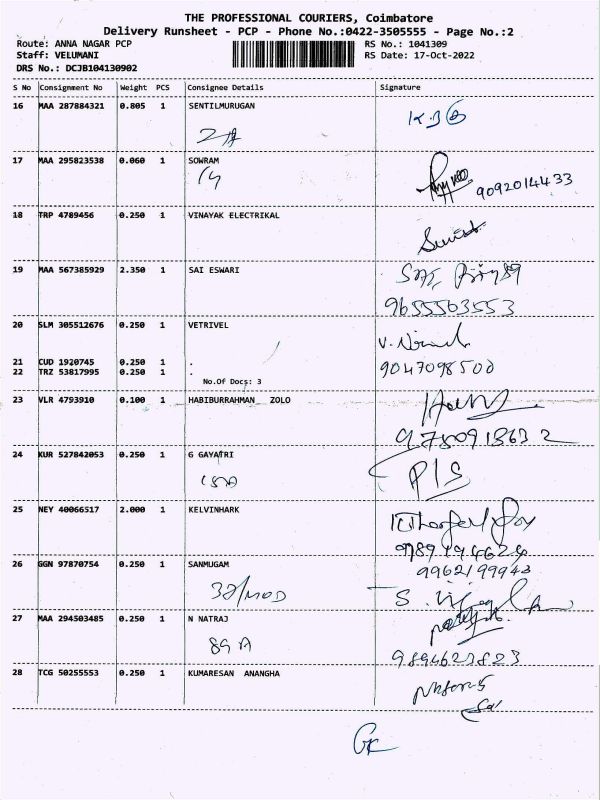 THE PROFESSIONAL COURIERS, Coimbatore
Delivery Runsheet - PCP - Phone No.:0422-3505555 - Page No.:2
Route: ANNA NAGAR PCP RS No.: 1041309
Staff: VELUMANI RS Date: 17-Oct-2022
DRS No.: DCJB104130902
S No Consignment No Weight PCS Consignee Details Signature
16 MAA 287884321 0.805 1 SENTILMURUGAN
17 MAA 295823538 0.060 1 SOWRAM
9092014433
18 TRP 4789456 0.250 1 VINAYAK ELECTRIKAL
19 MAA 567385929 2.350 1 SAI ESWARI
9655563553
20 SLM 305512676 0.250 1 VETRIVEL
21 CUD 1920745 0.250 1 .
22 TRZ 53817995 0.250 1 . 9047098500
No.Of Docs: 3
23 VLR 4793910 0.100 1 HABIBURRAHMAN ZOLO
24 KUR 527842053 0.250 1 G GAYATRI
18A P/S
25 NEY 40066517 2.000 1 KELVINHARK
26 GGN 97870754 0.250 1 SANMUGAM
9962199943
27 MAA 294503485 0.250 1 N NATRAJ
89 A
9894623823
28 TCG 50255553 0.250 1 KUMARESAN ANANGHA